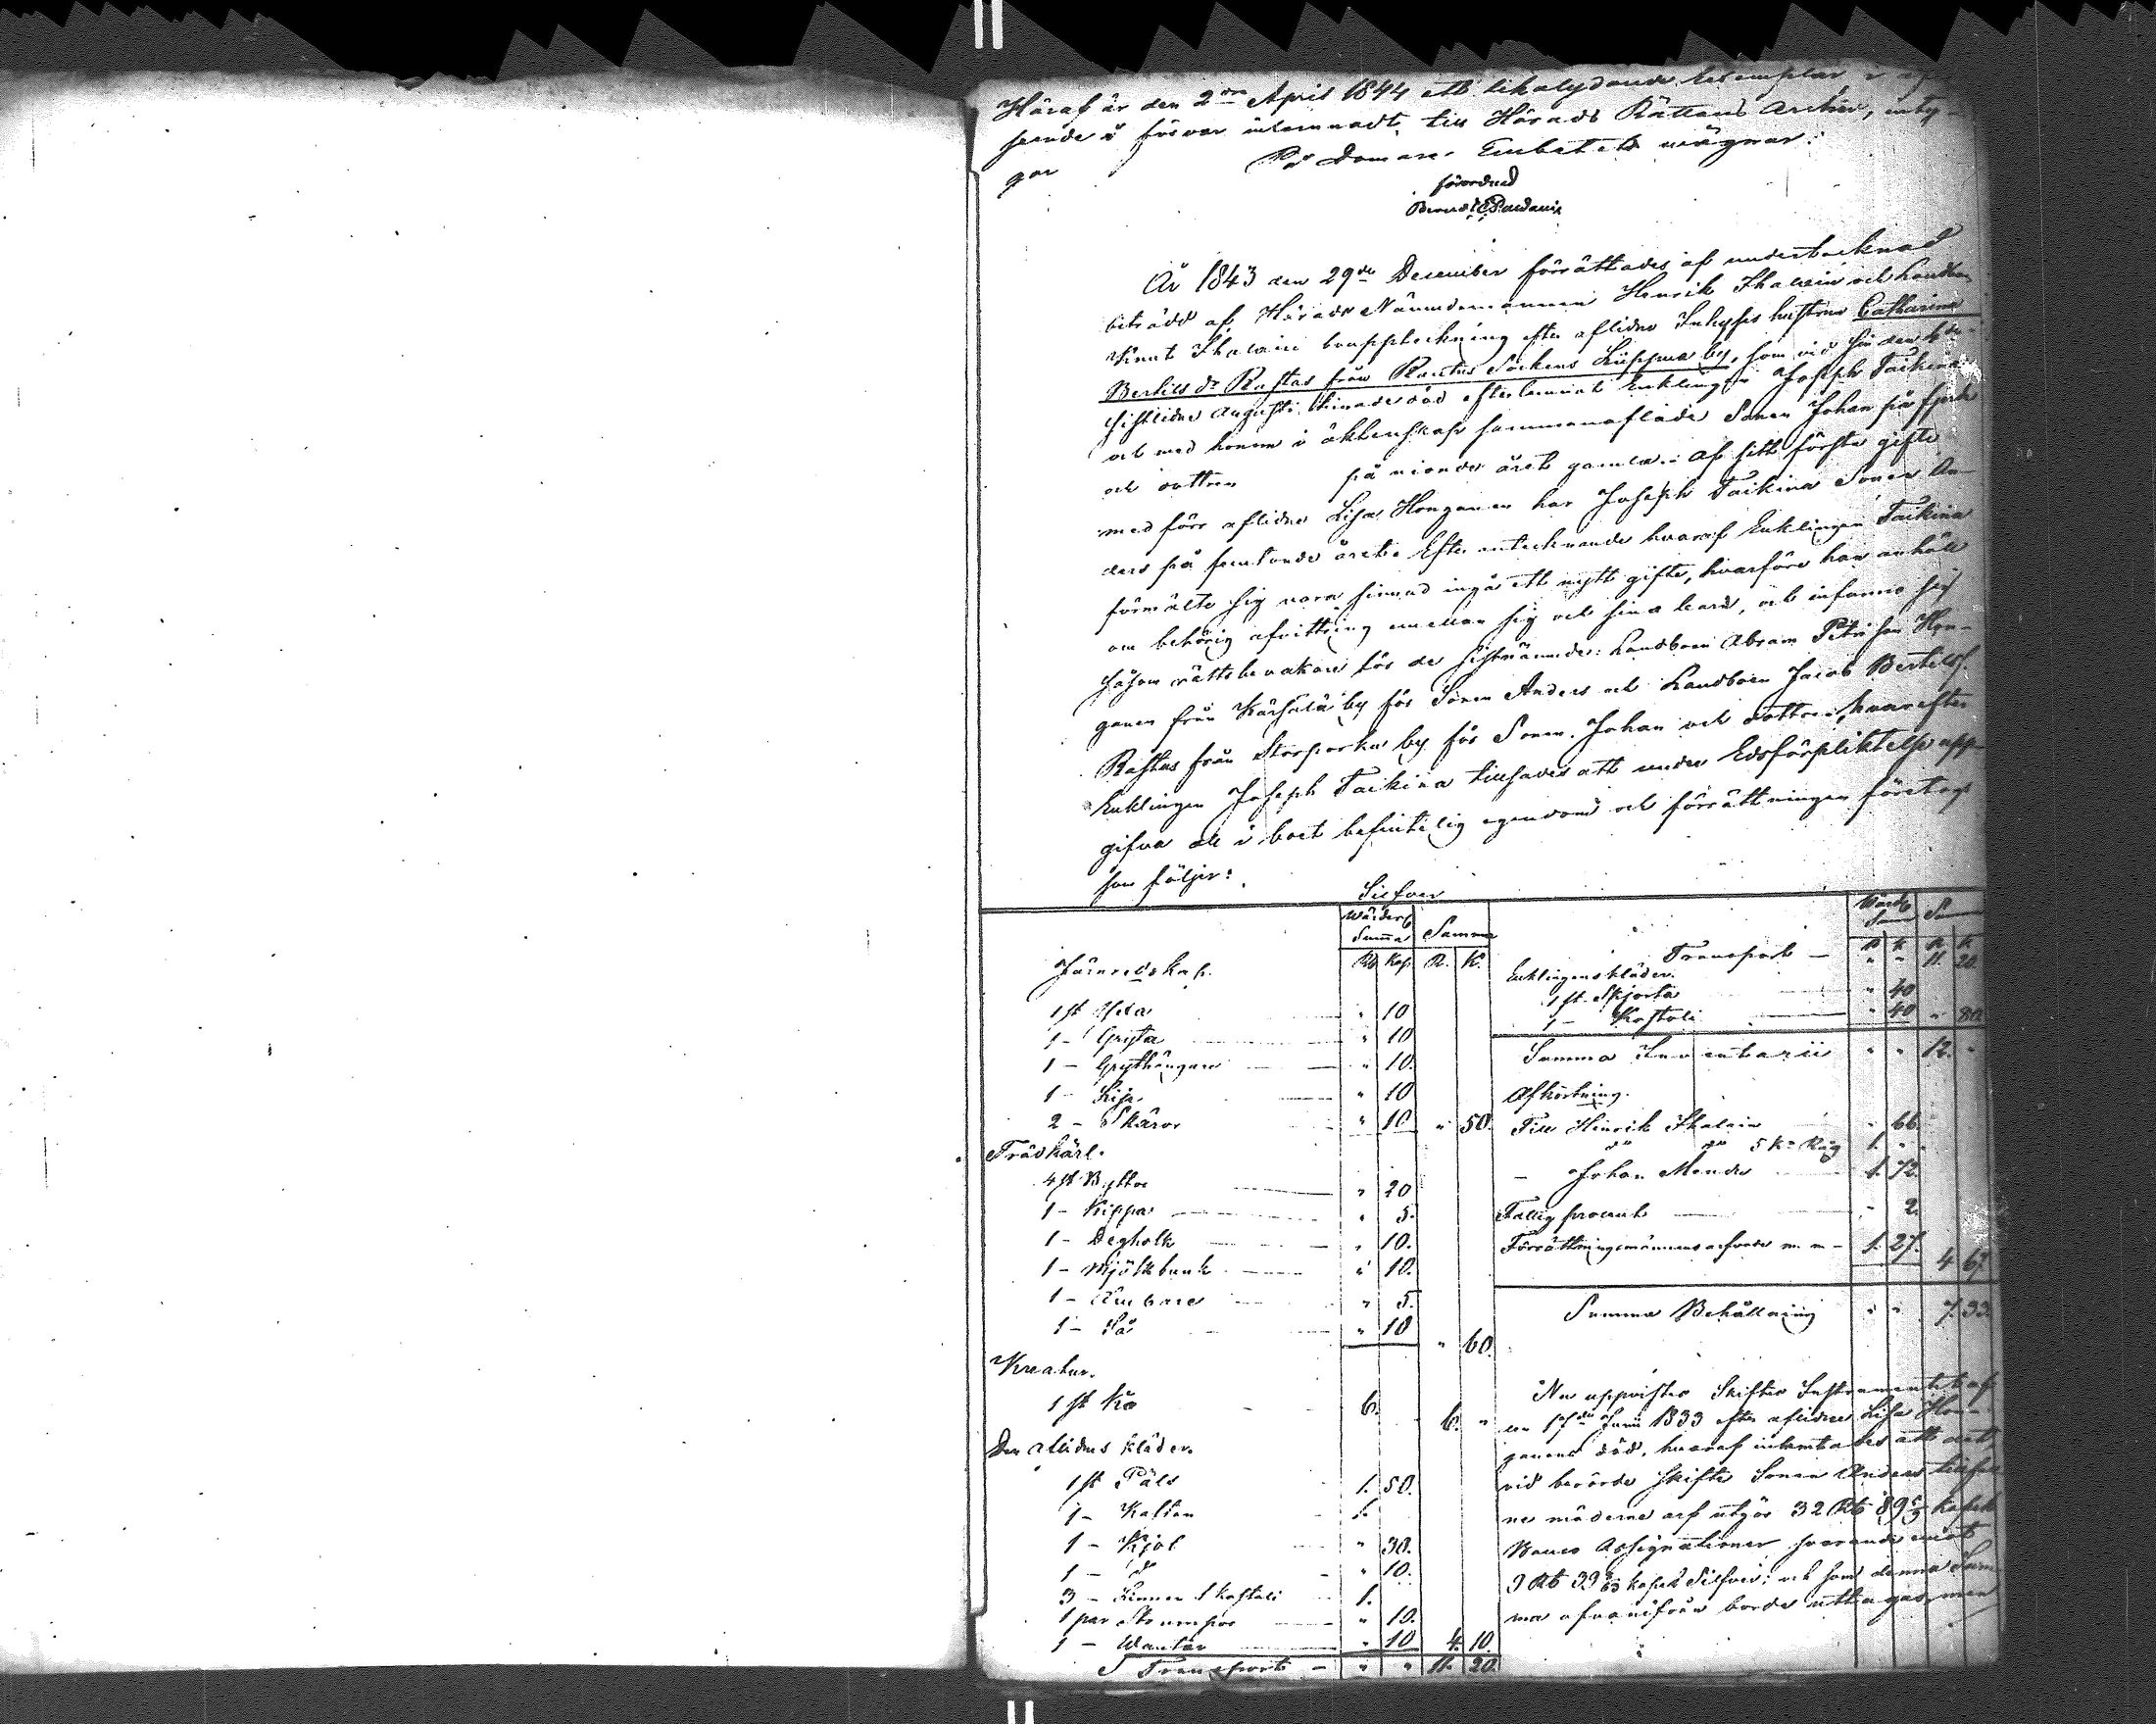 Häraf är den 2dra April 1844 ett likalydande Exemplar i
seende å förvar inlemnadt till Härads Rättens Archiv, inty-
gar På Domare Embetets vägnar:
förordnad
År 1843 den 29de December förrättades af undertecknad
biträdd af Härads Nämndemannen Henrik Skalain och Landbon
Knut Skalain bouppteckning efter aflidne Inhyses hustrun Catharina
Bertils dr Rastas från Rautus Sockens Lippua by, som vid sin den
sistlidne Augusti timade död efterlemnat Enklingen Joseph Taikina
och med honom i äktenskap sammanaflade Sonen Johan på fjerde
och dottren på nionde året gamla. Af sitt första gifte
med förr aflidne Lisa Honganen har Joseph Taikina Sonen An-
ders på femtonde året. Efter antecknande hvaraf Enklingen Taikina
förmälte sig vara sinnad ingå ett nytt gifte, hvarföre han anhöll
om behörig afvittring emellan sig och sina barn, och infunno sig
såsom rättsbevakare för de sistnämnde: Landboen Abram Petri son Hon-
ganen från Kärsälä by för Sonen Anders och Landboen Jacob Bertilss.
Rastas från Storporku by för Sonen Johan och dottren, hvarefter
Enklingen Joseph Taikina tillsades att under Edsförpliktelse upp-
gifva all i boet befintelig egendom och förrättningen företogs
som följer:
Silfver
Wärderb Summa Samma
Rb Kop. R. K.
Järnredskap.
1 st
" 10
1 - Gryta " 10
1 - Grythängare " 10.
1 - Lija " 10
2 - Skäror " 10 " 50.
Trädkärl.
4 st Byttor " 20
1 - Kippa " 5.
1 - Degholk " 10.
1 - Mjölkbunk " 10.
1 - Ämbare " 5.
1 - Så " 10 " 60.
Kreatur.
1 st Ko 6. 6. "
Den aflidnes kläder.
1 st Päls 1. 50.
1 - Kaftan 1. "
1 - Kjol " 30.
1 - do " 10.
3 - Linnen 1.
1 par Strumpor " 10.
1 - Wantar " 10 4. 10.
Transport - " " 11. 20.
Wärdb Summa
R K R K
Transport - " " 11. 20.
Enklingens kläder.
1 st. Skjorta " 40
1 - Kostoli " 40 " 80
Summa Inventarii " " 12. "
Afkortning.
Till Hinrik Skalain " 66.
do do 5 Kr Råg 1. "
- Johan Mondes 1. 72.
Fattig procent " 2.
Förrättningsmännens arfvode m. m - 1. 27. 4 67.
Summa Behållning " " 7. 33.
Nu uppvistes Skiftes Instrumentet af
den 17de Junii 1833 efter aflidne Lisa Hon-
ganens död, hvaraf inhemtades att det
vid berörde skifte Sonen Anders tillfal
ne möderne arf utgör 32 Rb kopek
Banco Assignationer svarande emot
9 Rb kopek Silfver; och som denna Sum
ma ofvanifrån borde uttagas, men